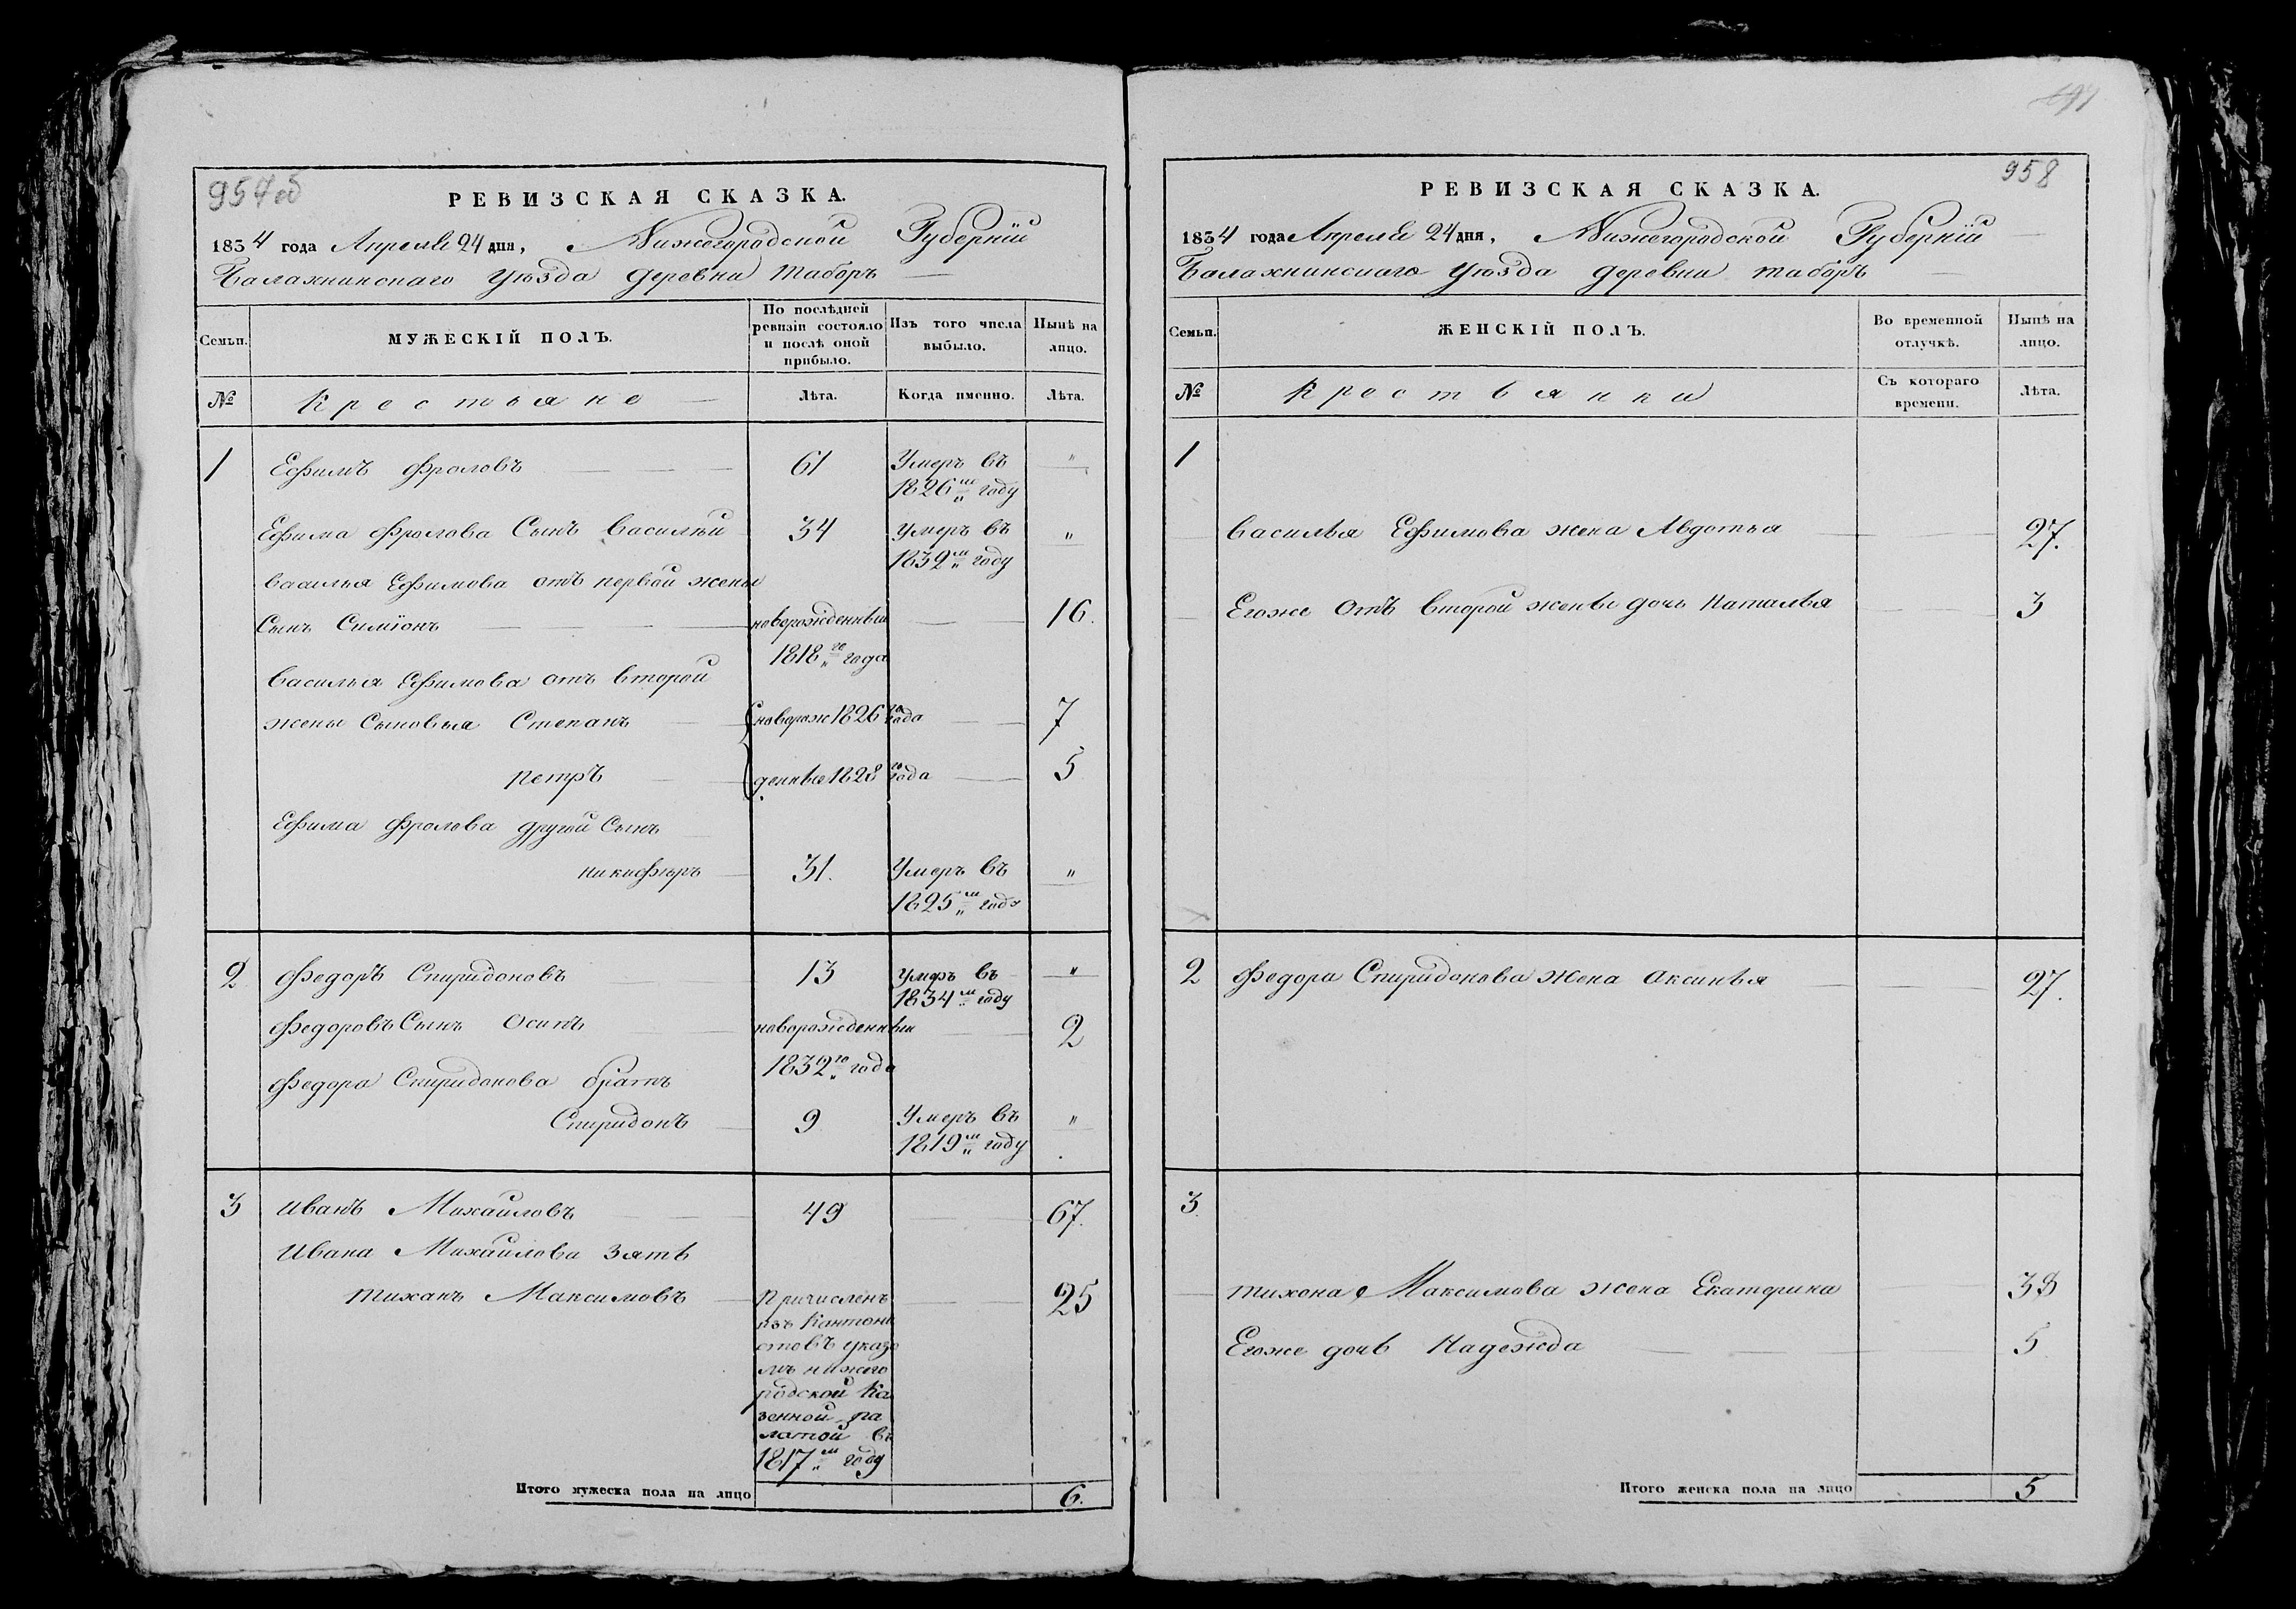 957об
РЕВИЗСКАЯ СКАЗКА.
1834 года Апреля 24 дня, Нижегородской Губернiи
Балахнинскаго уѣзда деревни таборъ
Семьи. МУЖЕСКІЙ ПОЛЪ. По послѣдней ревизіи состояло и послѣ оной прибыло. Изъ того числа выбыло. Нынѣ на лицо.
№ Крестьяне Лѣта. Когда именно. Лѣта.
1 Ефимъ Фроловъ 61 Умеръ въ "
1826 м году
Ефима Фролова Сынъ Василѣй 34 умеръ въ "
1832 м году
Василья Ефимова отъ первой жены
Сынъ Симiонъ новорожденный 16.
1818 го года
Василья Ефимова отъ второй
жены Сыновья Степанъ новорож 1826 го года 7
петръ денные 1828 го года 5
Ефима Фролова другой Сынъ
никифоръ 31. Умеръ въ "
1825 м году
2 Федоръ Спиридоновъ 13 умеръ въ "
1834 м году
Федоровъ Сынъ Осипъ новорожденный 2
1832 го года
Федора Спиридонова братъ
Спиридонъ 9 Умеръ въ "
1819 м году
3 Иванъ Михайловъ 49 67.
Ивана Михайлова зять
тиханъ Максимовъ Причисленъ 25
изъ Кантони
стовъ указо
мъ нижего
родской Ка
зенной па
латой въ
1817 м году
Итого мужеска пола на лицо 6.
958
РЕВИЗСКАЯ СКАЗКА.
1834 года Апреля 24 дня, Нижегородской Губернiи
Балахнинскаго уѣзда деревни таборъ
Семьи. ЖЕНСКІЙ ПОЛЪ. Во временной отлучкѣ. Нынѣ на лицо.
№ Крестьянки Съ котораго времени. Лѣта.
1
Василья Ефимова жена Авдотья 27.
Егоже отъ второй жены дочь Наталья 3
2 Федора Спиридонова жена Аксинья 27.
3.
тихона Максимова жена Екатерина 38
Егоже дочь Надежда 5
Итого женска пола на лицо 5